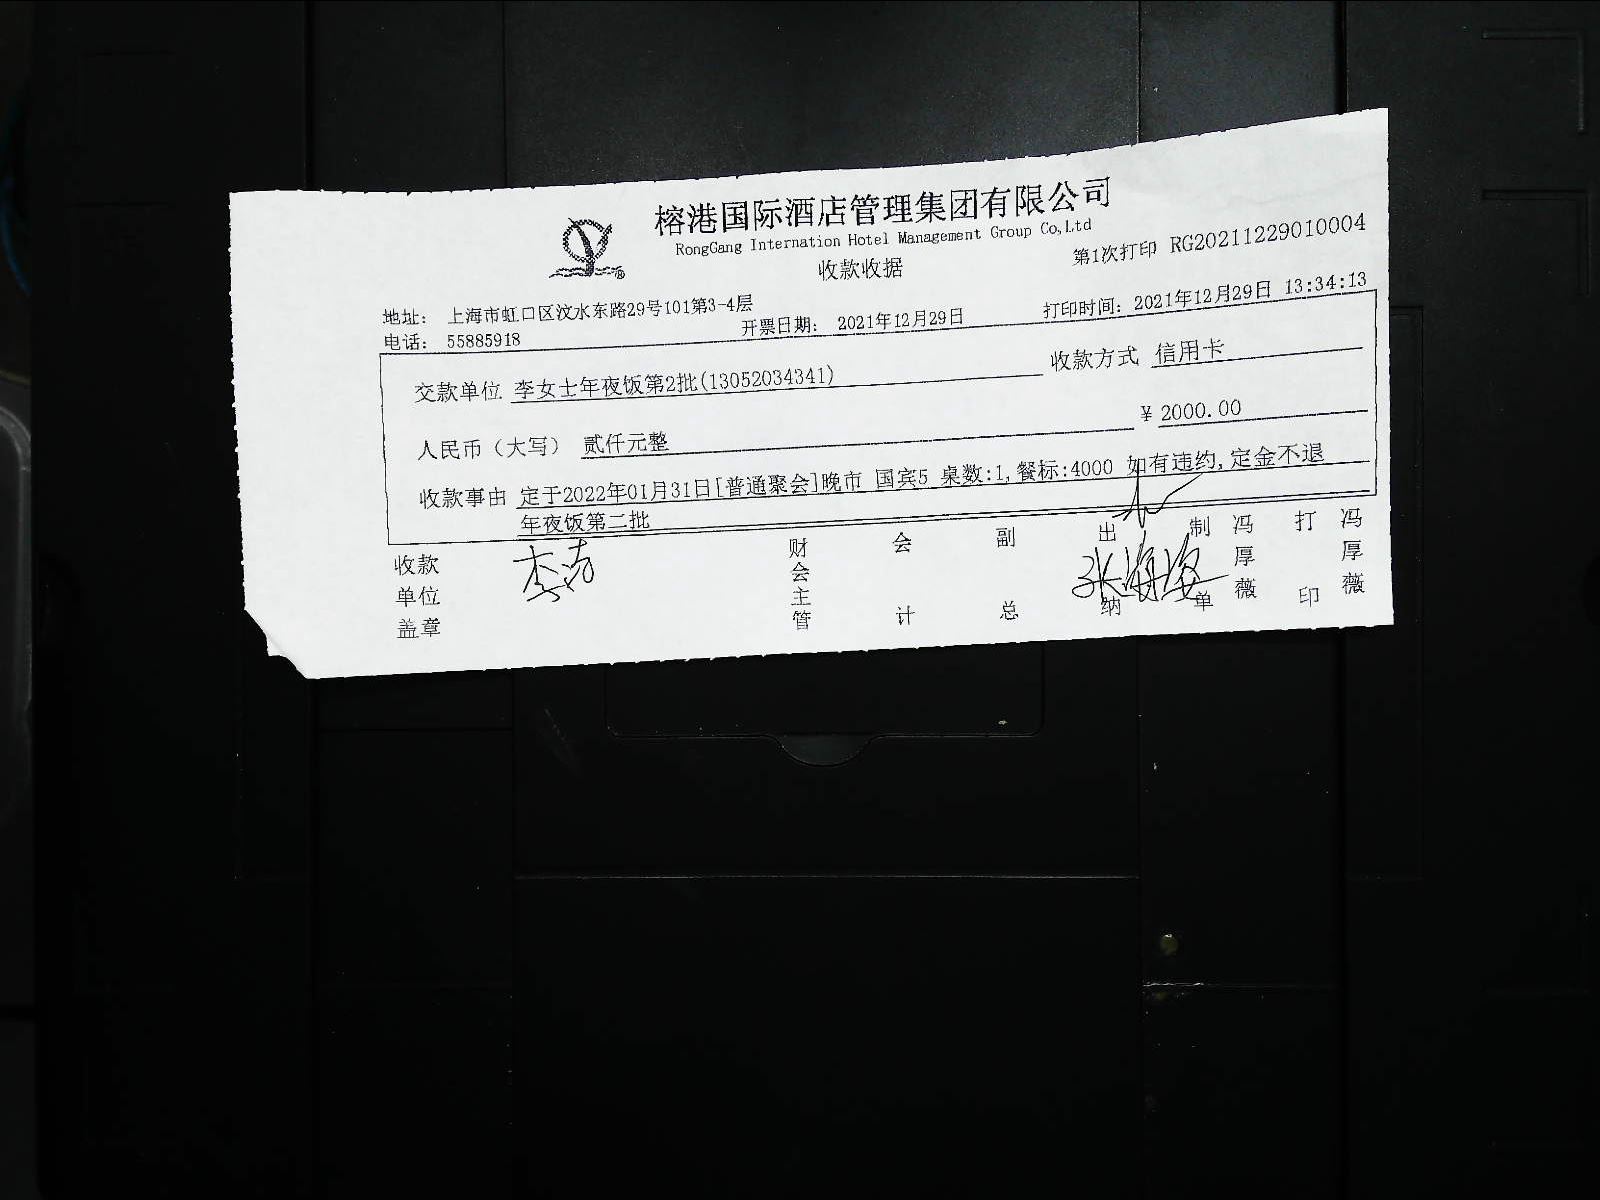 榕港国际酒店管理集团有限公司
RongGang Internation Hotel Management Group Co,Ltd
收款收据
第1次打印 RG20211229010004
地址： 上海市虹口区汶水东路29号101第3-4层
电话： 55885918 开票日期： 2021年12月29日 打印时间：2021年12月29日 13:34:13
交款单位 李女士年夜饭第2批(13052034341) 收款方式 信用卡
人民币（大写） 贰仟元整 ¥ 2000.00
收款事由 定于2022年01月31日[普通聚会]晚市 国宾5 桌数:1,餐标:4000 如有违约,定金不退
年夜饭第二批
收款单位盖章 财会主管 会计 副总 出纳 制单 冯厚薇 打印 冯厚薇